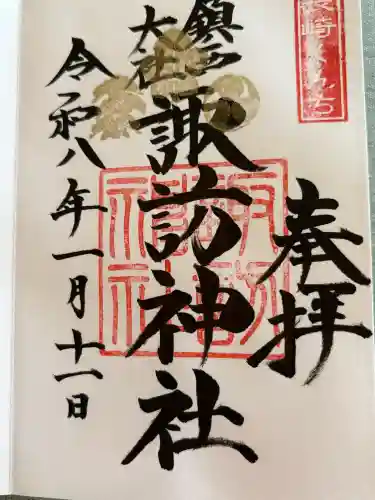 奉拝
鎮西
大社
諏訪神社
令和八年一月十一日
諏訪
神社